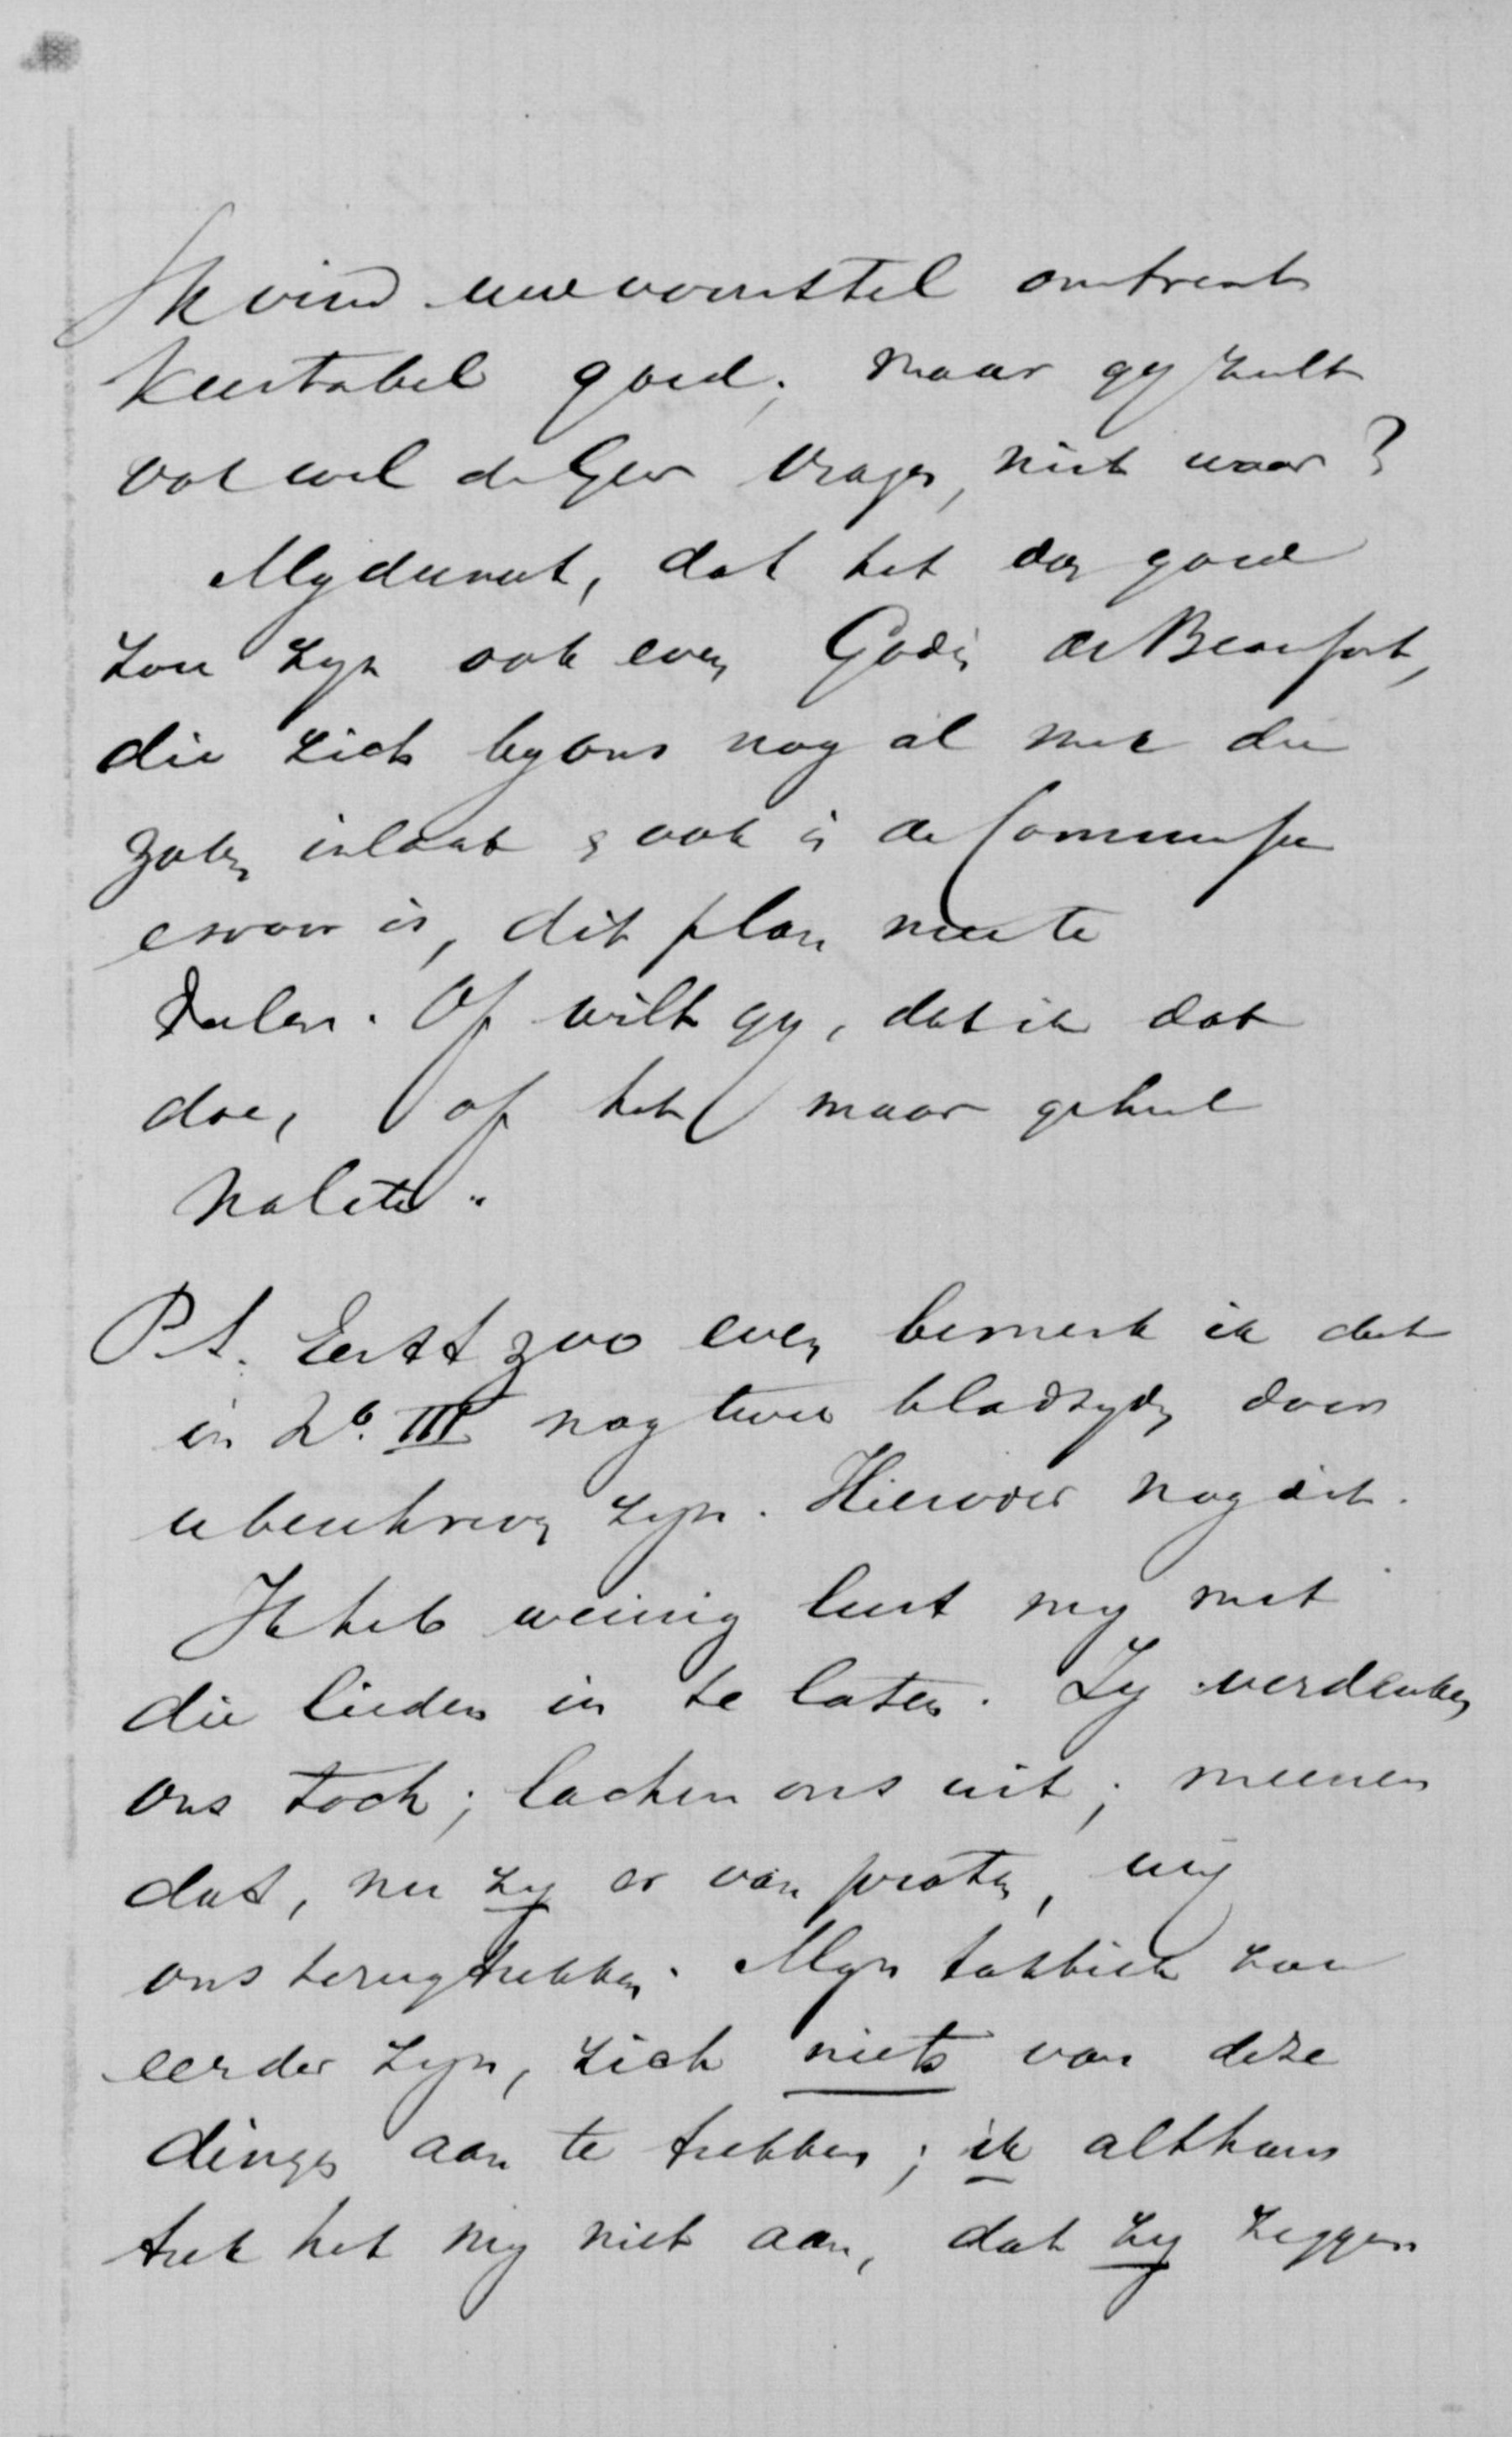 Ik vind uw voorstel omtrent
Keestabel goed; maar gy zult
ook wel de Geer vragen, niet waar?
Mydunkt, dat het dan goed
zou zyn ook even Godin de Beaufort,
die zich by ons nog al met die
zaken inlaat & ook in de Commissie
ervoor is, dit plan mee te
deelen. Of wilt gy, dat ik dat
doe, of het maar geheel
nalaten.
P.S. Eerst zoo even bemerk ik dat
in No. III nog twee bladzyden door
u beschreven zyn. Hierover nog dit.
Ik heb weinig lust my met
die lieden in te laten. Zy verdenken
ons toch; lachen ons uit; meenen
dat, nu zy er van praten, wy
ons terugtrekken. Myn taktiek zou
eerder zyn, zich niets van deze
dingen aan te trekken; ik althans
trek het my niet aan, dat zy zeggen